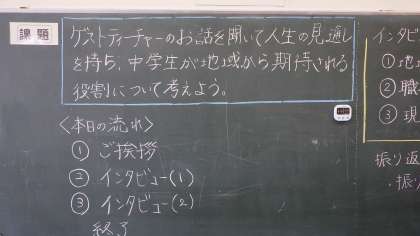 課題
ゲストティーチャーのお話を聞いて人生の見通し
を持ち、中学生が地域から期待される
役割について考えよう。
<本日の流れ>
① ご挨拶
② インタビュー(1)
③ インタビュー(2)
終了
インタビ
① 地
② 職
③ 現
振り返
・振